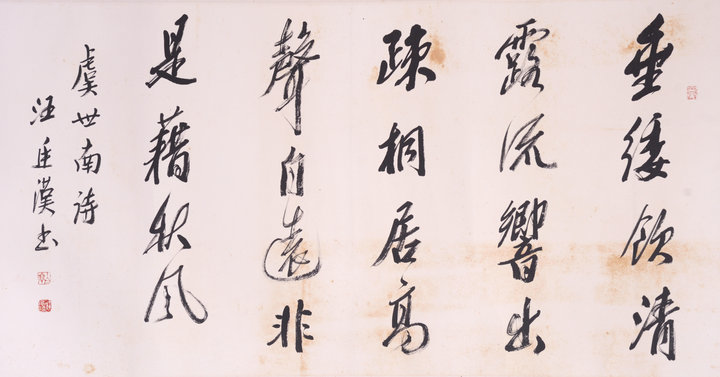 垂緌飲清
露流響出
疎桐居高
聲自遠非
是藉秋風
虞世南诗
汪漢书